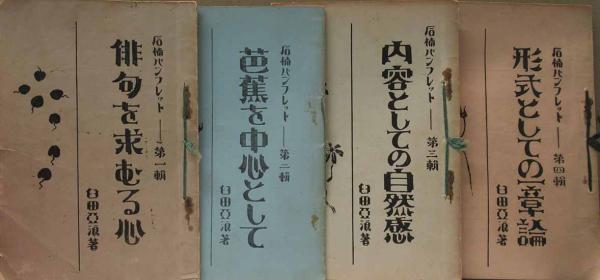 石楠パンフレット——第一輯
俳句を求むる心
臼田亞浪著
石楠パンフレット——第二輯
芭蕉を中心として
臼田亞浪著
石楠パンフレット——第三輯
内容としての自然感
臼田亞浪著
石楠パンフレット——第四輯
形式としての一章論
臼田亞浪著